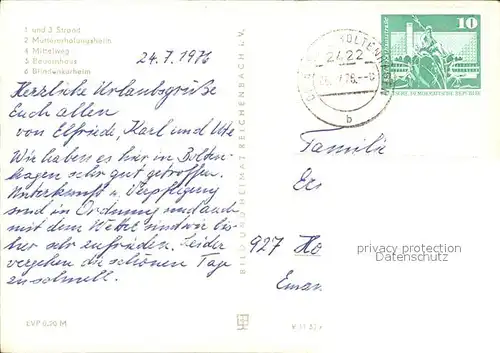 1 und 3 Strand
2 Müttererholungsheim
4 Mittelweg
5 Bauernhaus
6 Blindenkurheim
24.7.1976
Herzliche Urlaubsgrüße
Euch allen
von Elfriede, Karl und Ute
Wir haben es hier in Bolten-
hagen sehr gut getroffen.
Unterkunft u. Verpflegung
sind in Ordnung und auch
mit dem Wetter sind wir bis-
her sehr zufrieden. Leider
vergehen die schönen Tage
zu schnell.
EVP 0,20 M
BILD UND HEIMAT REICHENBACH I. V.
2422
b
10
DEUTSCHE DEMOKRATISCHE REPUBLIK
Familie
927 Ho
privacy protection
Datenschutz